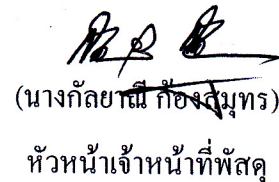 (นางกัลยาณี ก้องสมุทร)
หัวหน้าเจ้าหน้าที่พัสดุ